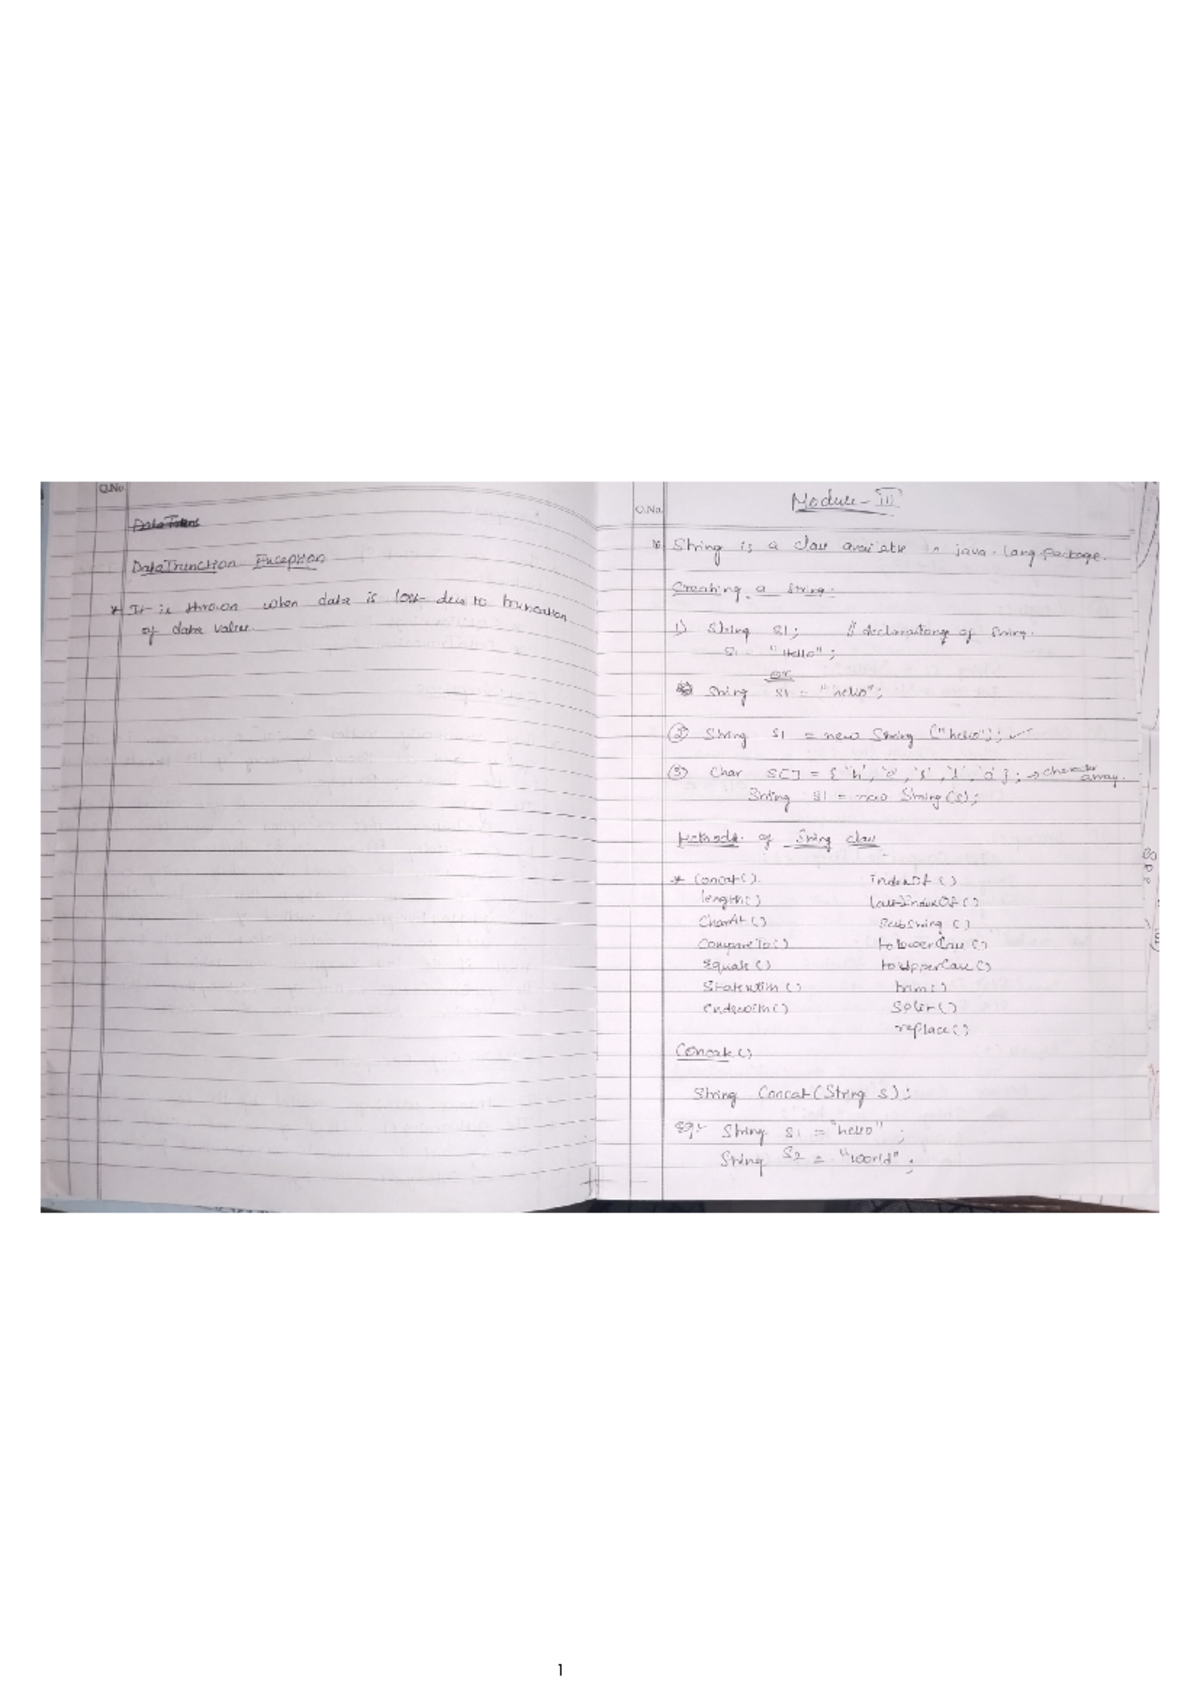 Q.No
DataTrunction Exception
* It is thrown when data is lost due to truncation
of data value.
Q.No
Module - III
* String is a class available in java.lang.package.
Creating a string:
1) String s1; // declarationg of string.
s1 = "Hello";
or
String s1 = "hello";
② String s1 = new String ("hello"); ✓
③ Char s[] = { 'h', 'e', 'l', 'l', 'o' }; → character
array.
String s1 = new String(s);
Methods of String class
* Concat() indexOf ()
length() lastIndexOf ()
CharAt () SubString ()
CompareTo() toLowerCase ()
Equals () toUpperCase ()
trim()
endswith() Split ()
replace()
Concate()
String Concat(String s);
Eg:- String s1 = "hello" ;
String S2 = "world" ;
1